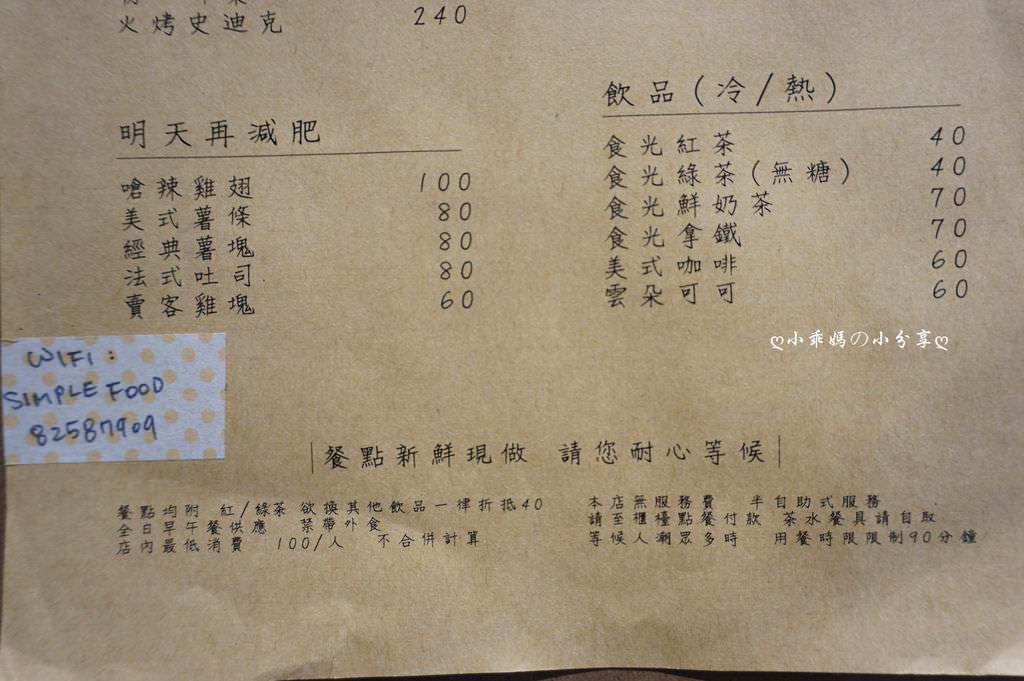 火烤史迪克 240
明天再減肥
嗆辣雞翅 100
美式薯條 80
經典薯塊 80
法式吐司 80
賣客雞塊 60
飲品(冷/熱)
食光紅茶 40
食光綠茶(無糖) 40
食光鮮奶茶 70
食光拿鐵 70
美式咖啡 60
雲朵可可 60
ღ小乖媽の小分享ღ
WIFI:
SIMPLE FOOD
82587909
|餐點新鮮現做 請您耐心等候|
餐點均附 紅/綠茶 欲換其他飲品一律折抵40
全日早午餐供應 禁帶外食
店內最低消費 100/人 不合併計算
本店無服務費 半自助式服務
請至櫃檯點餐付款 茶水餐具請自取
等候人潮眾多時 用餐時限限制90分鐘